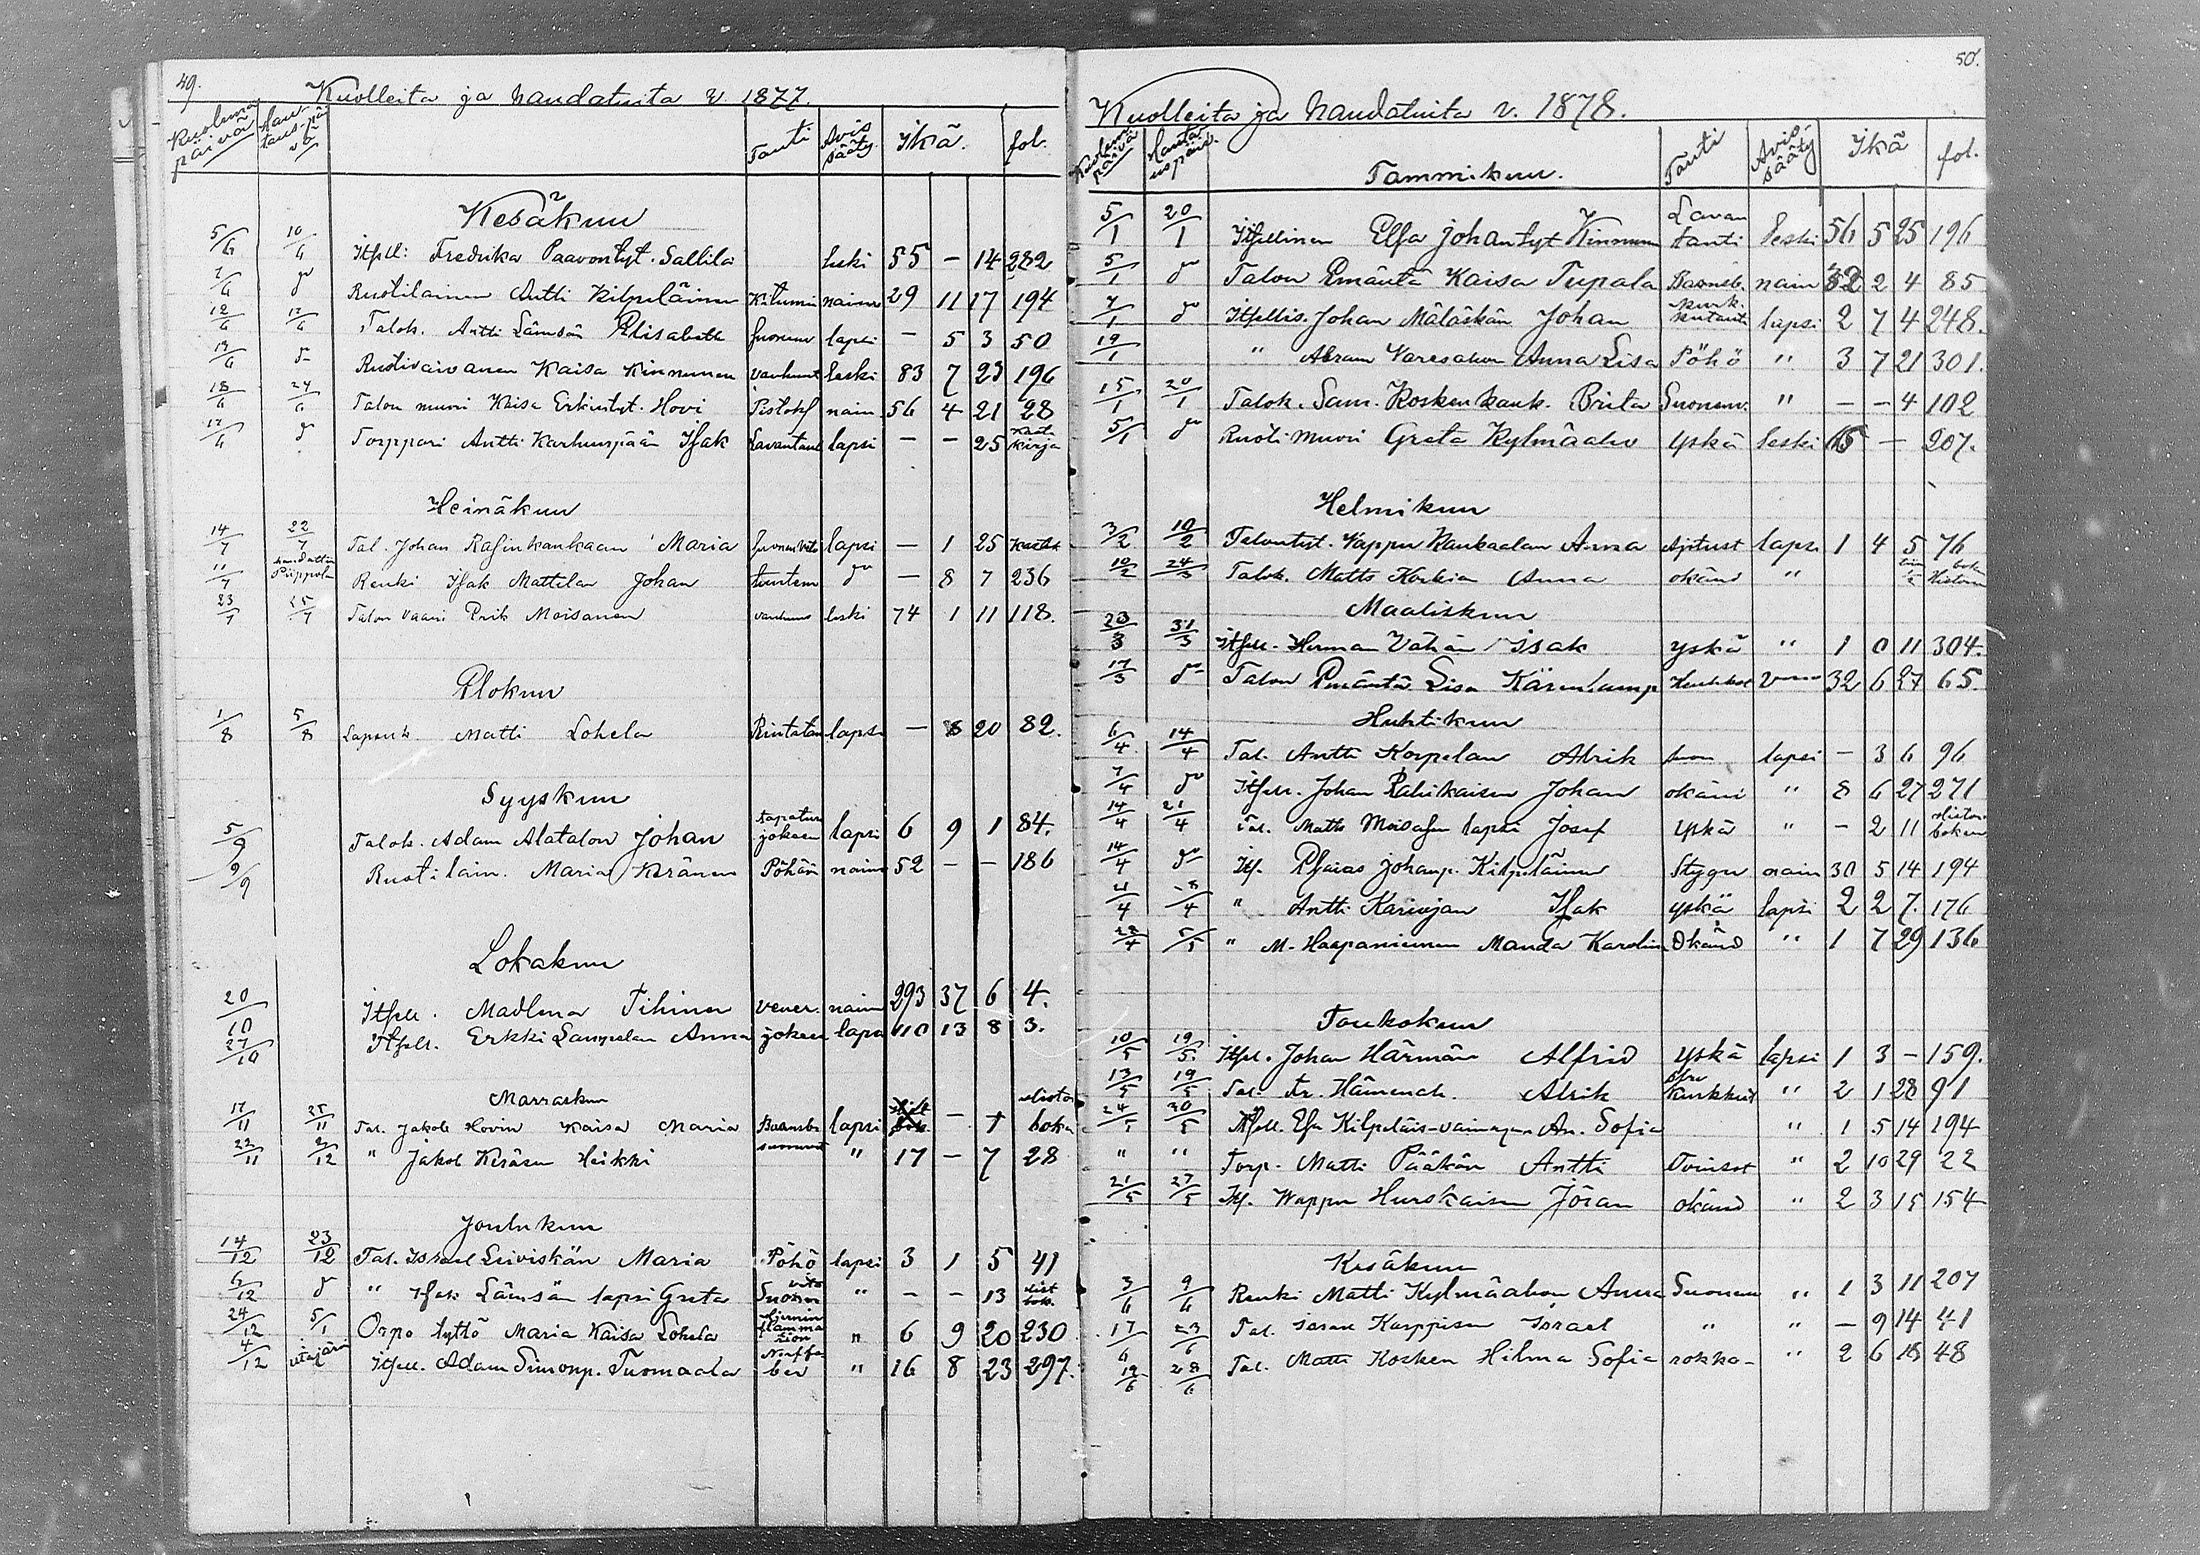 49.
Kuolleita ja haudatuita v. 1877.
Kuolema päivä Hautaus-päivä Tauti Avissääty Ikä. fol.
Kesäkuu
5/6 10/6 Itsell: Fredrika Paavontyt. Sallila leski 55 – 14 282
7/6 do Ruotilainen Antti Kilpeläinen Kitumin nainu 29 11 17 194
12/6 17/6 Talok. Antti Lämsän Elisabeth Suonenv lapsi – 5 3 50
14/6 do Ruotivaivanen Kaisa Kinnunen vanhuut leski 83 7 23 196
18/6 24/6 Talon muori Kaisa Erkintyt. Hovi Pistoks nain 56 4 21 28
17/6 do Torppari Antti Karhunpään Isak Lavantaut lapsi – – 25 kirja
Heinäkuu
14/7 22/7 Tal. Johan Rasinkankaan Maria Suonenveto lapsi – 1 25
11/7 haudattiin Piippola Renki Isak Mattilan Johan tuntem do – 8 7 236
23/7 25/7 Talon Vaari Erik Moisanen vanhuus leski 74 1 11 118.
Elokuu
1/8 5/8 Matti Lohela Rintataut lapsi – 8 20 82.
Syyskuu
5/9 Talok. Adam Alatalon Johan tapatur jokeen lapsi 6 9 1 84.
9/9 Ruotilain. Maria Keränen Pöhön nainu 52 – – 186
Lokakuu
20/10 Itsell. Madlena Tihinen vener. nainu 293 37 6 4.
27/10 Itsell. Erkki Lampelan Anna jokeen lapsi 110 13 8 3.
Marraskuu
17/11 25/11 Tal. Jakob Hovin Kaisa Maria Baarnsb. lapsi – 7 boken
22/11 2/12 " Jakob Keräsen Heikki " 17 – 7 28
Joulukuu
14/12 23/12 Tal. Israel Leiviskän Maria Pöhö lapsi 3 1 5 41
6/12 do " Isak Lämsän lapsi Greta Suonenveto " – – 13
24/12 5/1 Orpo tyttö Maria Kaisa Lohela Hjerninflammation " 6 9 20 230
4/12 Itsell. Adam Simonp. Tuomaala " 16 8 23 297.
50.
Kuolleita ja haudatuita v. 1878.
Kuolem päivä Hautauspäiv. Tauti Avissääty Ikä fol.
Tammikuu.
5/1 20/1 Itsellinen Elsa Johantyt Kinnunen Lavantauti leski 56 5 25 196
5/1 do Talon Emäntä Kaisa Tupala Barnsb. nain 32 2 4 85
7/1 do Itsellis. Johan Mäläskän Johan kurk. lapsi 2 7 4 248.
19/1 " Abram Varesahon Anna Lisa Pöhö " 3 7 21 301.
15/1 20/1 Talok. Sam. Koskenkank. Brita Suonenv. " – – 4 102
5/1 do Ruoti muori Greta Kylmäaho Yskä leski 65 – 207.
Helmikuu
3/2 10/2 Talontyt. Vappu Kankaalan Anna Ajetust lapsi 1 4 5 76
10/2 24/3 Talok. Matts Korkian Anna okänd "
Maaliskuu
23/3 31/3 Itsell. Herman Vähän Isak yskä " 1 0 11 304.
17/3 do Talon Emäntä Lisa Kärenlamp 32 6 27 65.
Huhtikuu
6/4 14/4 Tal. Antti Korpelan Alrik suon lapsi – 3 6 96
7/4 do Itsell. Johan Rahikaisen Johan okänd " 8 6 27 271
14/4 21/4 Tal. Matts Moisasen lapsi Josef Yskä " – 2 11 boken
14/4 do Its. Esaias Johanp. Kilpeläinen Stygn nain 30 5 14 194
21/4 28/4 " Antti Kariojan Isak yskä lapsi 2 2 7. 176
22/4 5/5 " M. Haapaniemen Manda Karolin Okänd " 1 7 29 136
Toukokuu
10/5 19/5. Itsel. Johan Härmän Alfrid Yskä lapsi 1 3 – 159.
13/5 19/5 Tal. Fr. Alrik " 2 1 28 91
24/5 30/5 Itsell. Esa Kilpeläis-vainajan An. Sofia " 1 5 14 194
" " Torp. Matti Pääkön Antti " 2 10 29 22
21/5 27/5 Its. Wappu Hurskaisen Jöran okänd " 2 3 15 154
Kesäkuu
3/6 9/6 Renki Matti Kylmäahon Anna Suonenv " 1 3 11 207
17/6 23/6 Tal. Israel Karppisen Israel " " – 9 14 41
19/6 28/6 Tal. Matti Kosken Hilma Sofia rokko- " 2 6 18 48